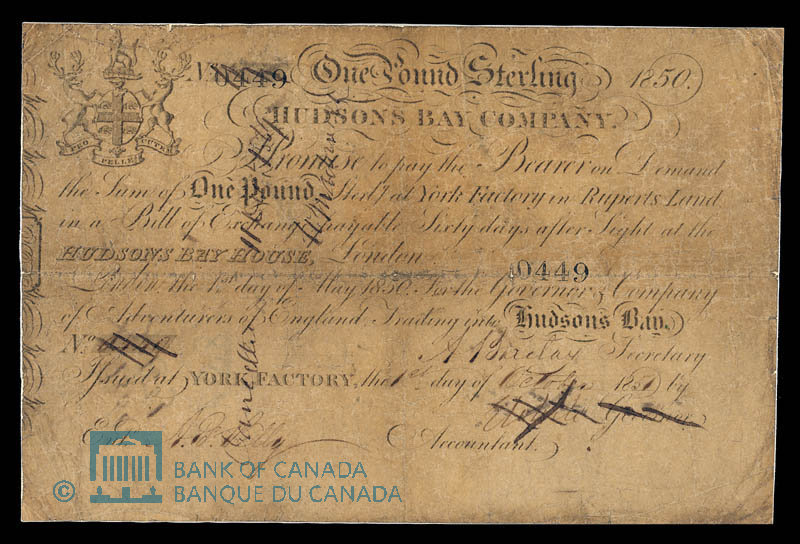 No. 0449 One Pound Sterling 1850.
HUDSONS BAY COMPANY.
PRO PELLE CUTEM
Promise to pay the Bearer on Demand
the Sum of One Pound Sterl'g at York Factory in Ruperts Land
in a Bill of Exchange payable Sixty days after Sight at the
HUDSONS BAY HOUSE, London.
0449
London the 1st day of May 1850. For the Governor & Company
of Adventurers of England, Trading into Hudsons Bay.
No.
A Barclay Secretary
Issued at YORK FACTORY, the 1st day of October 185 by
Governor.
Ent
Accountant.
Cancelled
© BANK OF CANADA
BANQUE DU CANADA